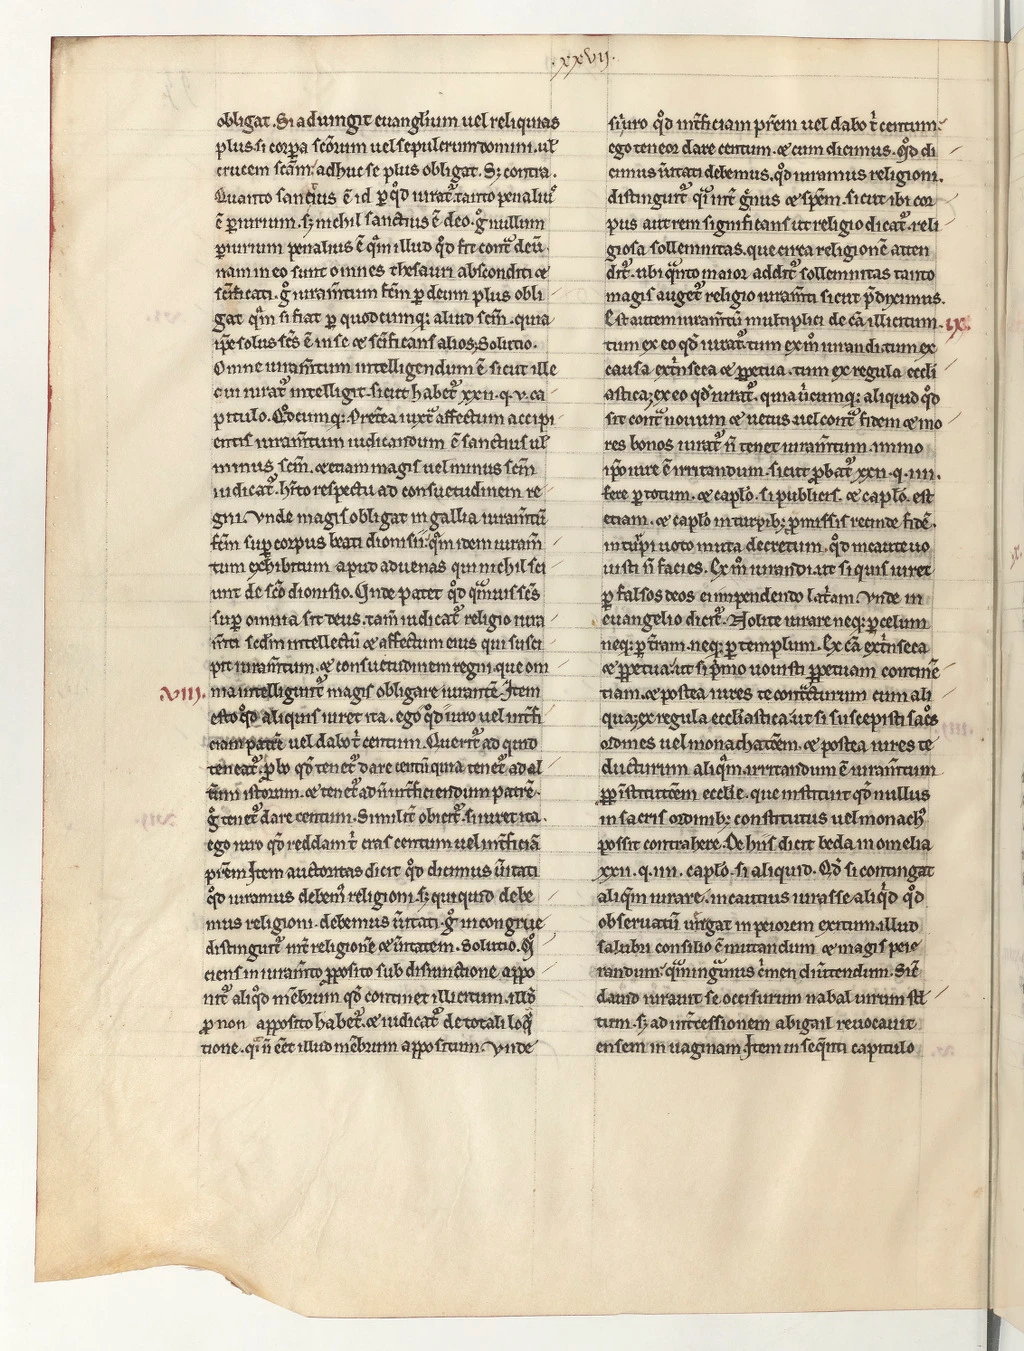 .xxvij.
obligat. Si adiungit euangłium uel reliquias
plus. si corpora scõrum uel sepulcrum domini. uł
crucem scãm. adhuc se plus obligat. Sʒ contra.
Quanto sanctius ẽ id per qđ iurat. tanto penalius
ẽ periurium. sʒ nichil sanctius ẽ deo. g̊ nullum
periurium penalius ẽ quam illud qđ fit contra deũ.
nam in eo sunt omnes thesauri absconditi et
sc̃ificati. g̊ iuramẽtum fc̃m per deum plus obli
gat quam si fiat per quodcumqʒ aliud scm̃. quia
ip̃e solus scs̃ ẽ in se et sc̃ificans alios. Solutio.
Omne iuramẽtum intelligendum ẽ sicut ille
cui iurat intelligit. sicut habet xxii. q. v. ca
pitulo. Qđcumqʒ. Preterea iuxta affectum accipi
entis iuramẽtum iudicandum ẽ sanctius uł
minus scm̃. et etiam magis uel minus scm̃
iudicat. hito respectu ad consuetudinem re
gni. Vnde magis obligat in gallia iuramẽtũ
fc̃m super corpus beati dionisii: quam idem iuramẽ
tum exhibitum apud aduenas qui nichil sci
unt de scõ dionisio. Vnde patet qđ quamuis scs̃
super omnia sit deus. tamen iudicat religio iura
mẽti scđm intellectũ et affectum eius qui susci
pit iuramẽtum. et consuetudinem regni. que om
viii. nia intelligunt magis obligare iurantẽ. Item
esto qđ aliquis iuret ita. ego qđ iuro uel intfi
ciam patrẽ uel dabo t̉ centum. Querit ad quid
teneat. probo qđ tenet dare centũ quia tenet ad al
terum istorum. et tenet ad ñ intficiendum patrẽ.
g̊ tenet dare centum. Similiter obicit. si iuret ita.
ego iuro qđ reddam t̉ cras centum uel intficiã
prẽm. Item auctoritas dicit qđ dicimus ũitati
qđ iuramus debemus religioni. sʒ quicquid debe
mus religioni. debemus ũitati. g̊ incongrue
distinguit int religionẽ et ũitatem. Solutio.
ciens in iuramẽto proposito sub disiunctione appo
nit aliqđ mẽbrum qđ continet illicitum. illđ
pro non apposito habet. et iudicat de totali loq
tione. qi ñ ẽẽt illud mẽbrum appositum. Vnde
si iuro qđ intficiam prẽm uel dabo t̉ centum:
ego teneor dare centum. et cum dicimus. Qđ di
cimus ũitati debemus. qđ iuramus religioni.
distinguit int gñus et spẽm. sicut ibi cor
pus aut rem significans ut religio dicat. reli
giosa sollemnitas. que circa religionẽ atten
dit. ubi quanto maior addit sollemnitas tanto
magis auget religio iuramẽti sicut pđiximus.
Est autem iuramẽtũ multiplici de cã illicitum. ix.
tum ex eo qđ iurat. tum ex mõ iurandi. tum ex
causa extinseca et perpetua. tum ex regula eccli
astica. ex eo qđ iurat. quia ucumqʒ aliquid qđ
sit contra nouum et uetus uel contra fidem et mo
res bonos iurat ñ tenet iuramẽtum. immo
ip̃o iure ẽ irritandum. sicut probat xxii. q. iiii.
fere per totum. et caplo. si publicis. et caplo. est
etiam. et caplo in turpibʒ promissis rescinde fidẽ.
in turpi uoto muta decretum. qđ incaute uo
uisti ñ facies. Ex mõ iurandi. ut si quis iuret
per falsos deos ei inpendendo latam. Vnde in
euangelio dicit. Nolite iurare neqʒ per celum
neqʒ per tram. neqʒ per templum. Ex cã extinseca
et perpetua. ut si pmo uouisti perpetuam continẽ
tiam. et postea iures te contacturum cum ali
qua. ex regula eccliastica. ut si suscepisti sacs
ordines uel monachatẽm. et postea iures te
ducturum aliqm. irritandum ẽ iuramẽtum
propter institutẽm ecclie. que instituit qđ nullus
in sacris ordinibʒ constitutus uel monachus
possit contrahere. De hiis dicit beda in omelia
xxii. q. iiii. caplo. si aliquid. Qđ si contingat
aliqm iurare. incautius iurasse aliqđ qđ
obseruatũ uergat in peiorem exitum. illud
salubri consilio ẽ mutandum et magis peie
randum: quam in grauius cimen diuertendum. Sic
dauid iurauit se occisurum nabal uirum stl
tum. sʒ ad intcessionem abigail reuocauit
ensem in uaginam. Item in seqnti capitulo